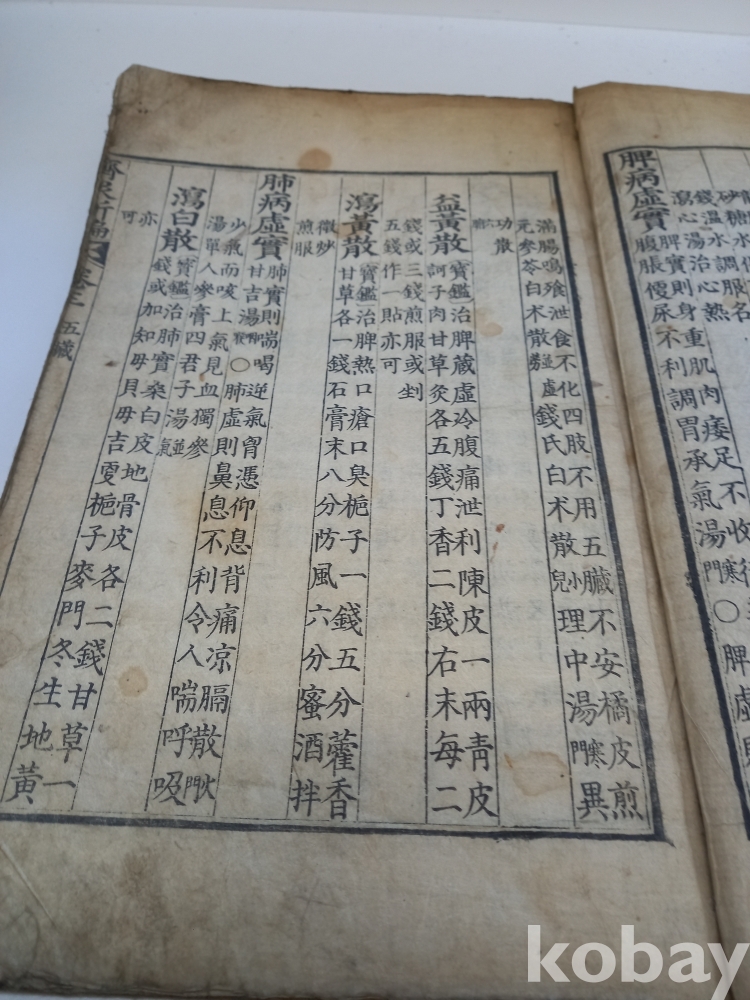 瀉心湯治心熱
脾病虛實 脾實則身重肌肉痿足不收行
腹脹㾽尿不利調胃承氣湯寒門○脾虛則
滿腸鳴飱泄食不化四肢不用五臟不安橘皮煎
元參苓白朮散並虛錢氏白朮散小兒理中湯寒門異
功散
益黃散 寶鑑治脾藏虛冷腹痛泄利陳皮一兩靑皮
訶子肉甘草灸各五錢丁香二錢右末每二
錢或三錢煎服或剉
五錢作一貼亦可
瀉黃散 寶鑑治脾熱口瘡口臭梔子一錢五分藿香
甘草各一錢石膏末八分防風六分蜜酒拌
微炒
煎服
肺病虛實 肺實則喘喝逆氣胷憑仰息背痛凉膈散火門
甘吉湯○肺虛則鼻息不利令人喘呼吸
少氣而咳上氣見血獨參
湯單人參膏四君子湯並氣
瀉白散 寶鑑治肺實桑白皮地骨皮各二錢甘草一
錢或加知母貝母吉更梔子麥門冬生地黃
亦
可
濟衆新編 卷三 五臟
kobay